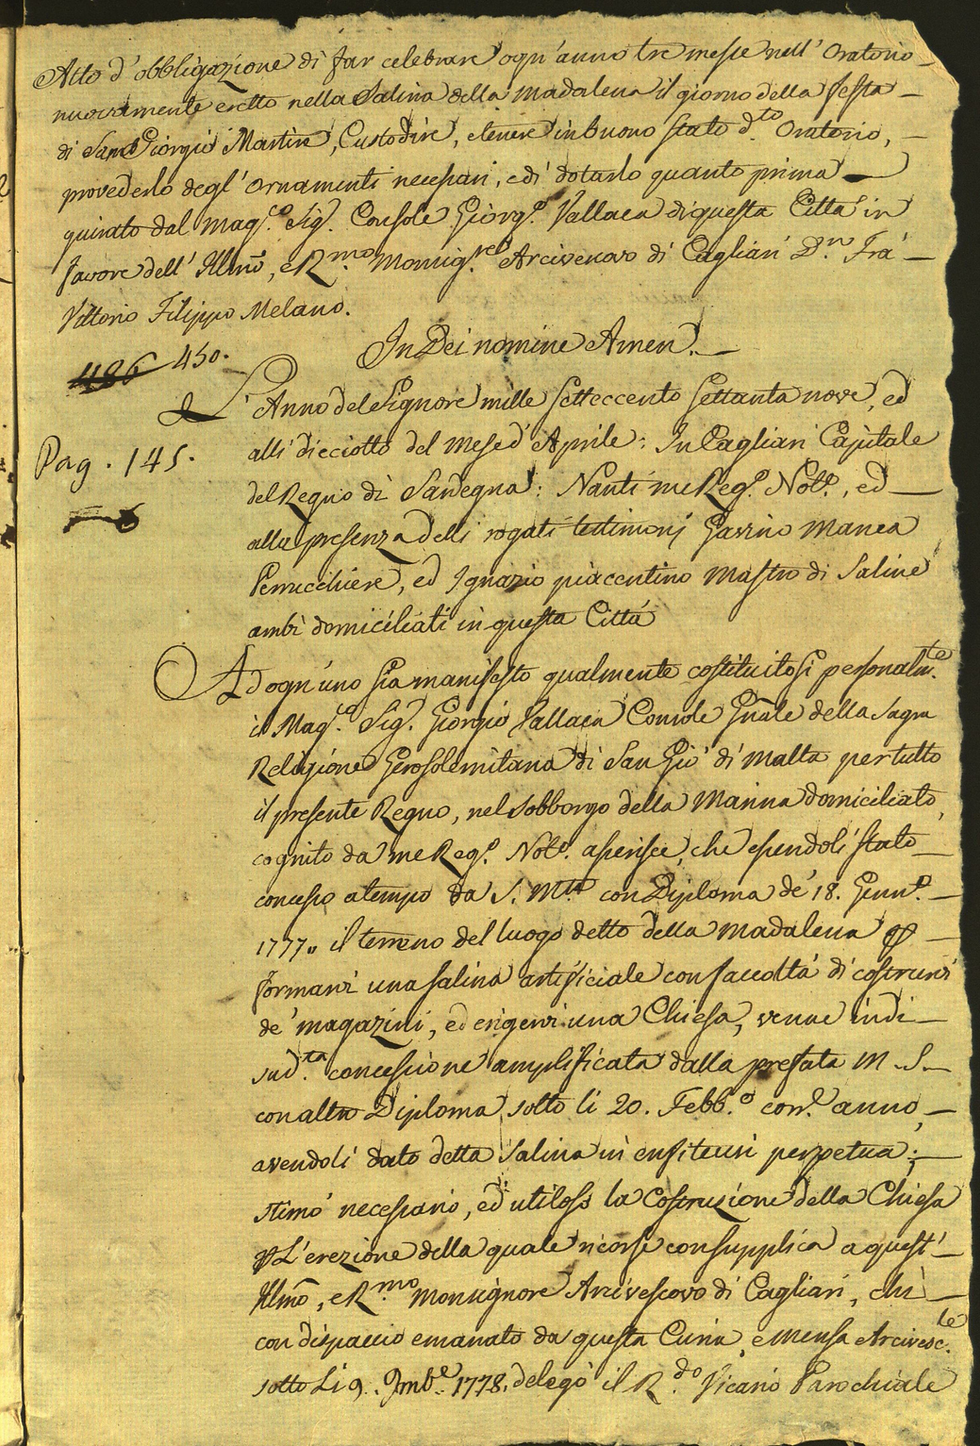 Atto d'obbligazione di far celebrare ogn'anno tre messe nell'Oratorio
nuovamente eretto nella Salina della Madalena il giorno della festa
di San Giorgio Martire, Custodire, e tenere in buono stato d.to Oratorio,
provederlo degl'ornamenti necessari, e di dotarlo quanto prima
giurato dal Mag.co Sig.r Console Giorg.o Vallaca di questa Città in
favore dell'Illmo, e R.mo Monsig.re Arcivescovo di Cagliari D.n Fra
Vittorio Filippo Melano.
In Dei nomine Amen.
486 450.
L'Anno del Signore mille settecento settanta nove, ed
alli dicciotto del mese d'Aprile: In Cagliari Capitale
Pag. 145.
del Regno di Sardegna: Nanti me Reg.o Not.o, ed
alla presenza delli rogati testimonj Gavino Manca
Perucchiere, ed Ignazio piacentino Mastro di Saline
ambi domiciliati in questa Città
Ad ogn'uno sia manifesto qualmente costituitosi personalm.te
il Mag.co Sig.r Giorgio Vallaca Console Gnale della Sagra
Religione Gerosolemitana di San Gio di Malta per tutto
il presente Regno, nel sobborgo della Marina domiciliato,
cognito da me Reg.o Not.o asserisce, che essendoli stato
concesso a tempo da S. M.tà con Diploma de' 18. Genn.o
1777. il terreno del luogo detto della Madalena p
formarvi una salina artificiale con faccoltà di costruirvi
de' magazini, ed erigervi una Chiesa, venne indi
sud.ta concessione amplificata dalla prefata M. S.
con altro Diploma sotto li 20. Febb.o corr.e anno,
avendoli dato detta Salina in enfiteusi perpetua;
stimò necessario, ed utiloso la Costruzione della Chiesa
p L'erezione della quale ricorse con supplica a quest'
Illmo, e R.mo Monsignore Arcivescovo di Cagliari, chi
con dispaccio emanato da questa Curia, e Mensa Arcivesc.le
sotto Li 9. 9mb.e 1778. delegò il R.do Vicario Parochiale